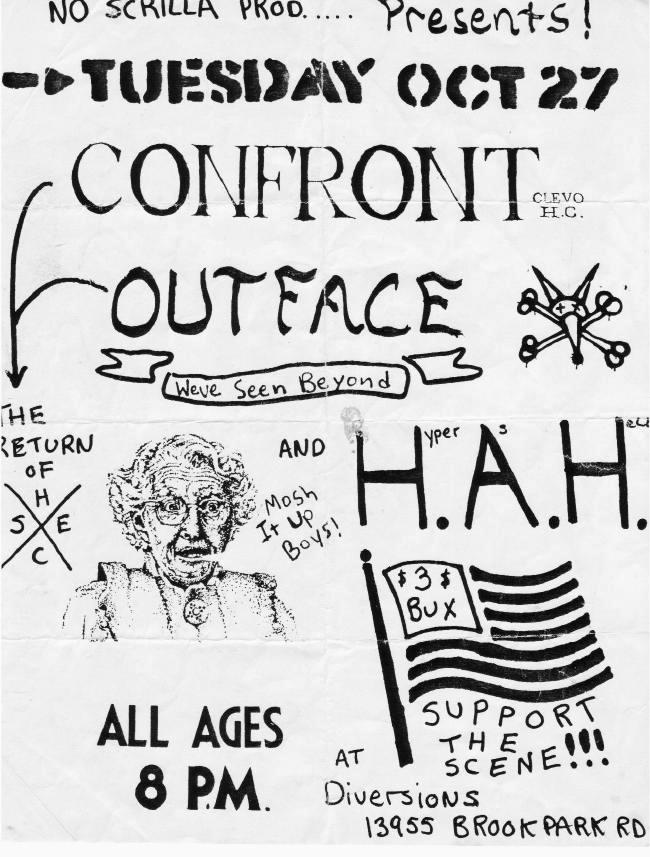 NO SCRILLA PROD..... Presents!
TUESDAY OCT 27
CONFRONT
CLEVO
H.C.
OUTFACE
Weve Seen Beyond
THE
RETURN
OF
H
S E
C
AND
Mosh
It Up
Boys!
Hyper As Hell
H.A.H.
$3$
BUX
SUPPORT
THE
SCENE!!!
ALL AGES
8 P.M.
AT
Diversions
13955 BROOKPARK RD